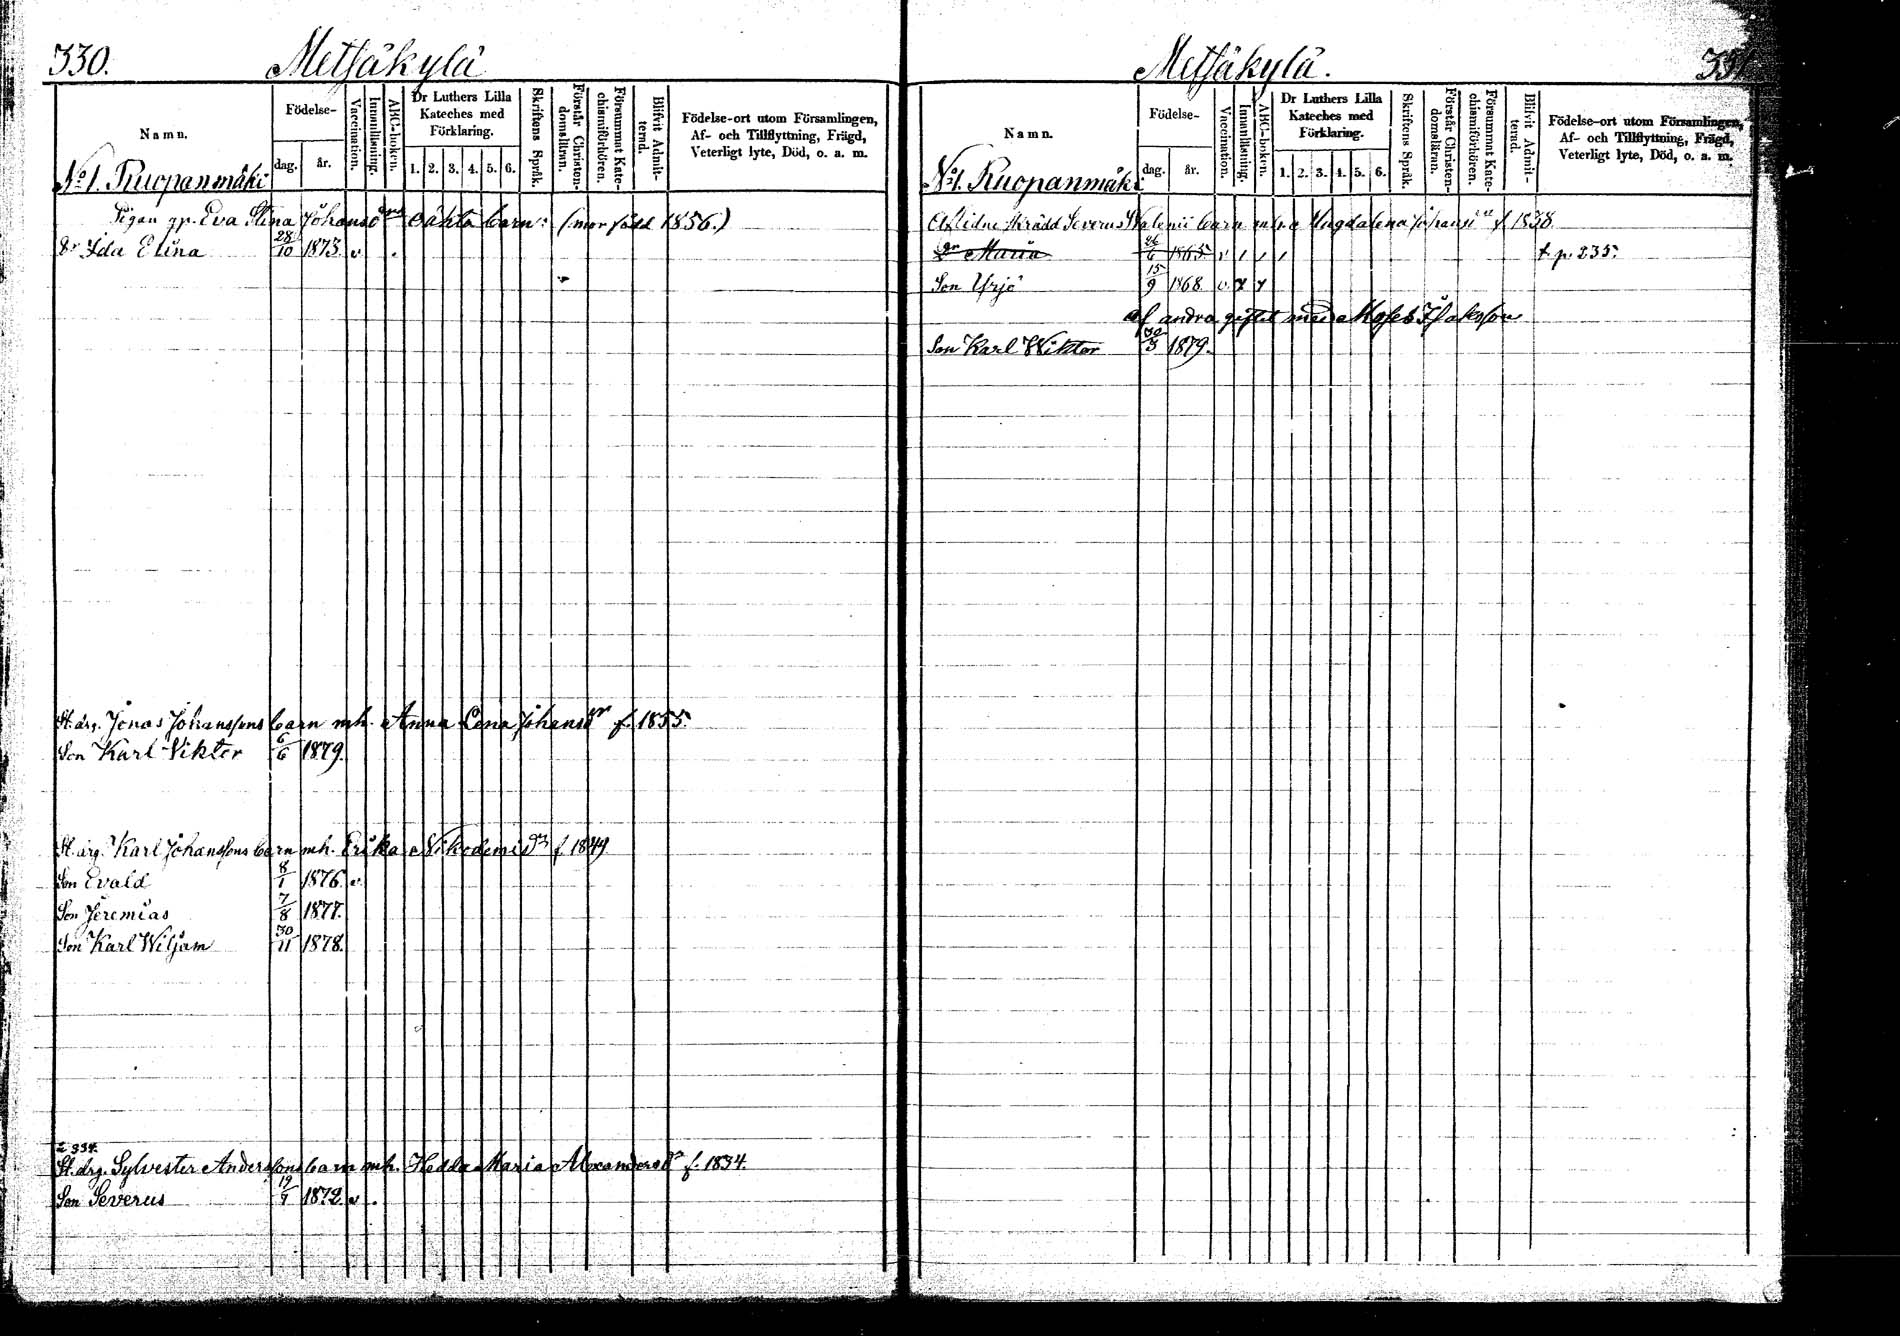 330.
Metsäkylä
Namn.
Födelse-
dag.
år.
Vaccination.
Innanläsning.
ABC-boken.
Dr Luthers Lilla
Kateches med
Förklaring.
1. 2. 3. 4. 5. 6.
Skriftens Språk.
Förstår Christen-
domsläran.
Försummat Kate-
chismiförhören.
Blifvit Admit-
terad.
Födelse-ort utom Församlingen,
Af- och Tillflyttning, Frägd,
Veterligt lyte, Död, o. a. m.
No 1. Ruopanmäki
Pigan gp. Eva Stina Johansdrs oäkta barn: (mor född 1856.)
Dr Ida Elina 28/10 1873. v .
St. drg. Jonas Johanssons barn mh. Anna Lena Johansdr f. 1855
Son Karl Viktor 6/6 1879.
St. drg. Karl Johanssons barn mh. Erika Nikodemidr f. 1849
Son Evald 8/1 1876. v.
Son Jeremias 7/8 1877.
Son Karl Wiljam 30/11 1878.
334.
St. drg. Sylvester Anderssons barn mh. Hedda Maria Alexandersdr f. 1834.
Son Severus 19/9 1872. v .
Metsäkylä.
331
Namn.
Födelse-
dag.
år.
Vaccination.
Innanläsning.
ABC-boken.
Dr Luthers Lilla
Kateches med
Förklaring.
1. 2. 3. 4. 5. 6.
Skriftens Språk.
Förstår Christen-
domsläran.
Försummat Kate-
chismiförhören.
Blifvit Admit-
terad.
Födelse-ort utom Församlingen,
Af- och Tillflyttning, Frägd,
Veterligt lyte, Död, o. a. m.
No 1. Ruopanmäki
Aflidne Skrädd Severus barn Magdalena Johansdr f. 1838.
Dr Maria 26/6 1865 p. 235.
Son Yrjö 15/9 1868 v.
af andra giftet med Moses Isaksson
Son Karl Wiktor 30/3 1879.